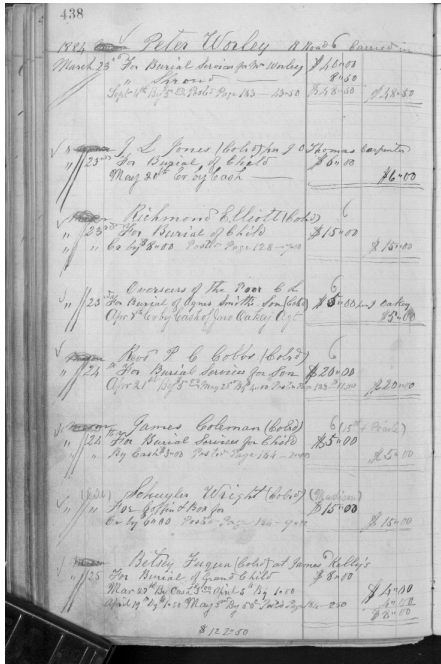 438
1884 Peter Worley R Road 6 Carried in
March 23d For Burial Services for Mr Worley $40"00
" Shroud 8"50
Sept 4th By 5 Posted Page 143 - 43.50 $48"50 $48"50
J L Jones (Cold) for J O Thomas Carpenter
" 23rd For Burial of Child $6"00
May 21st Cr by Cash $6"00
Richmond Elliott (Cold) 6
" 23rd For Burial of Child $15"00
" " Cr by $8"00 Posted Page 128 - 7"00 $15"00
Overseers of the Poor C L 6
" 23rd For Burial of Agnes Smith Son (Cold) $5"00 J Oakey
Apr 8th Cr by Cash of Jno Oakey Agt $5"00
Revd P C Cobbs (Cold) 6
" 24 For Burial Services for Son $20"00
Apr 21st By 5 May 25th By 4.00 Posted Page 133 11.00 $20"00
James Coleman (Cold) 6 (15th &
" 24 For Burial Services for Child $5"00
" By Cash 3"00 Posted Page 144 - 2"00 $5"00
Schuyler Wright (Cold) (Madison)
" " For Coffin & Box for $15"00
Cr by 6"00 Posted Page 144 - 9"00 $15"00
Betsy Fuqua (Cold) at James Kelly's
" 25 For Burial of Grand Child $8"00
Mar 27th By Cash April 5th By 1"00 $4"00
April 19th By 1"50 May 3rd By 50 Posted Page 2"50
$8"00
$122"50